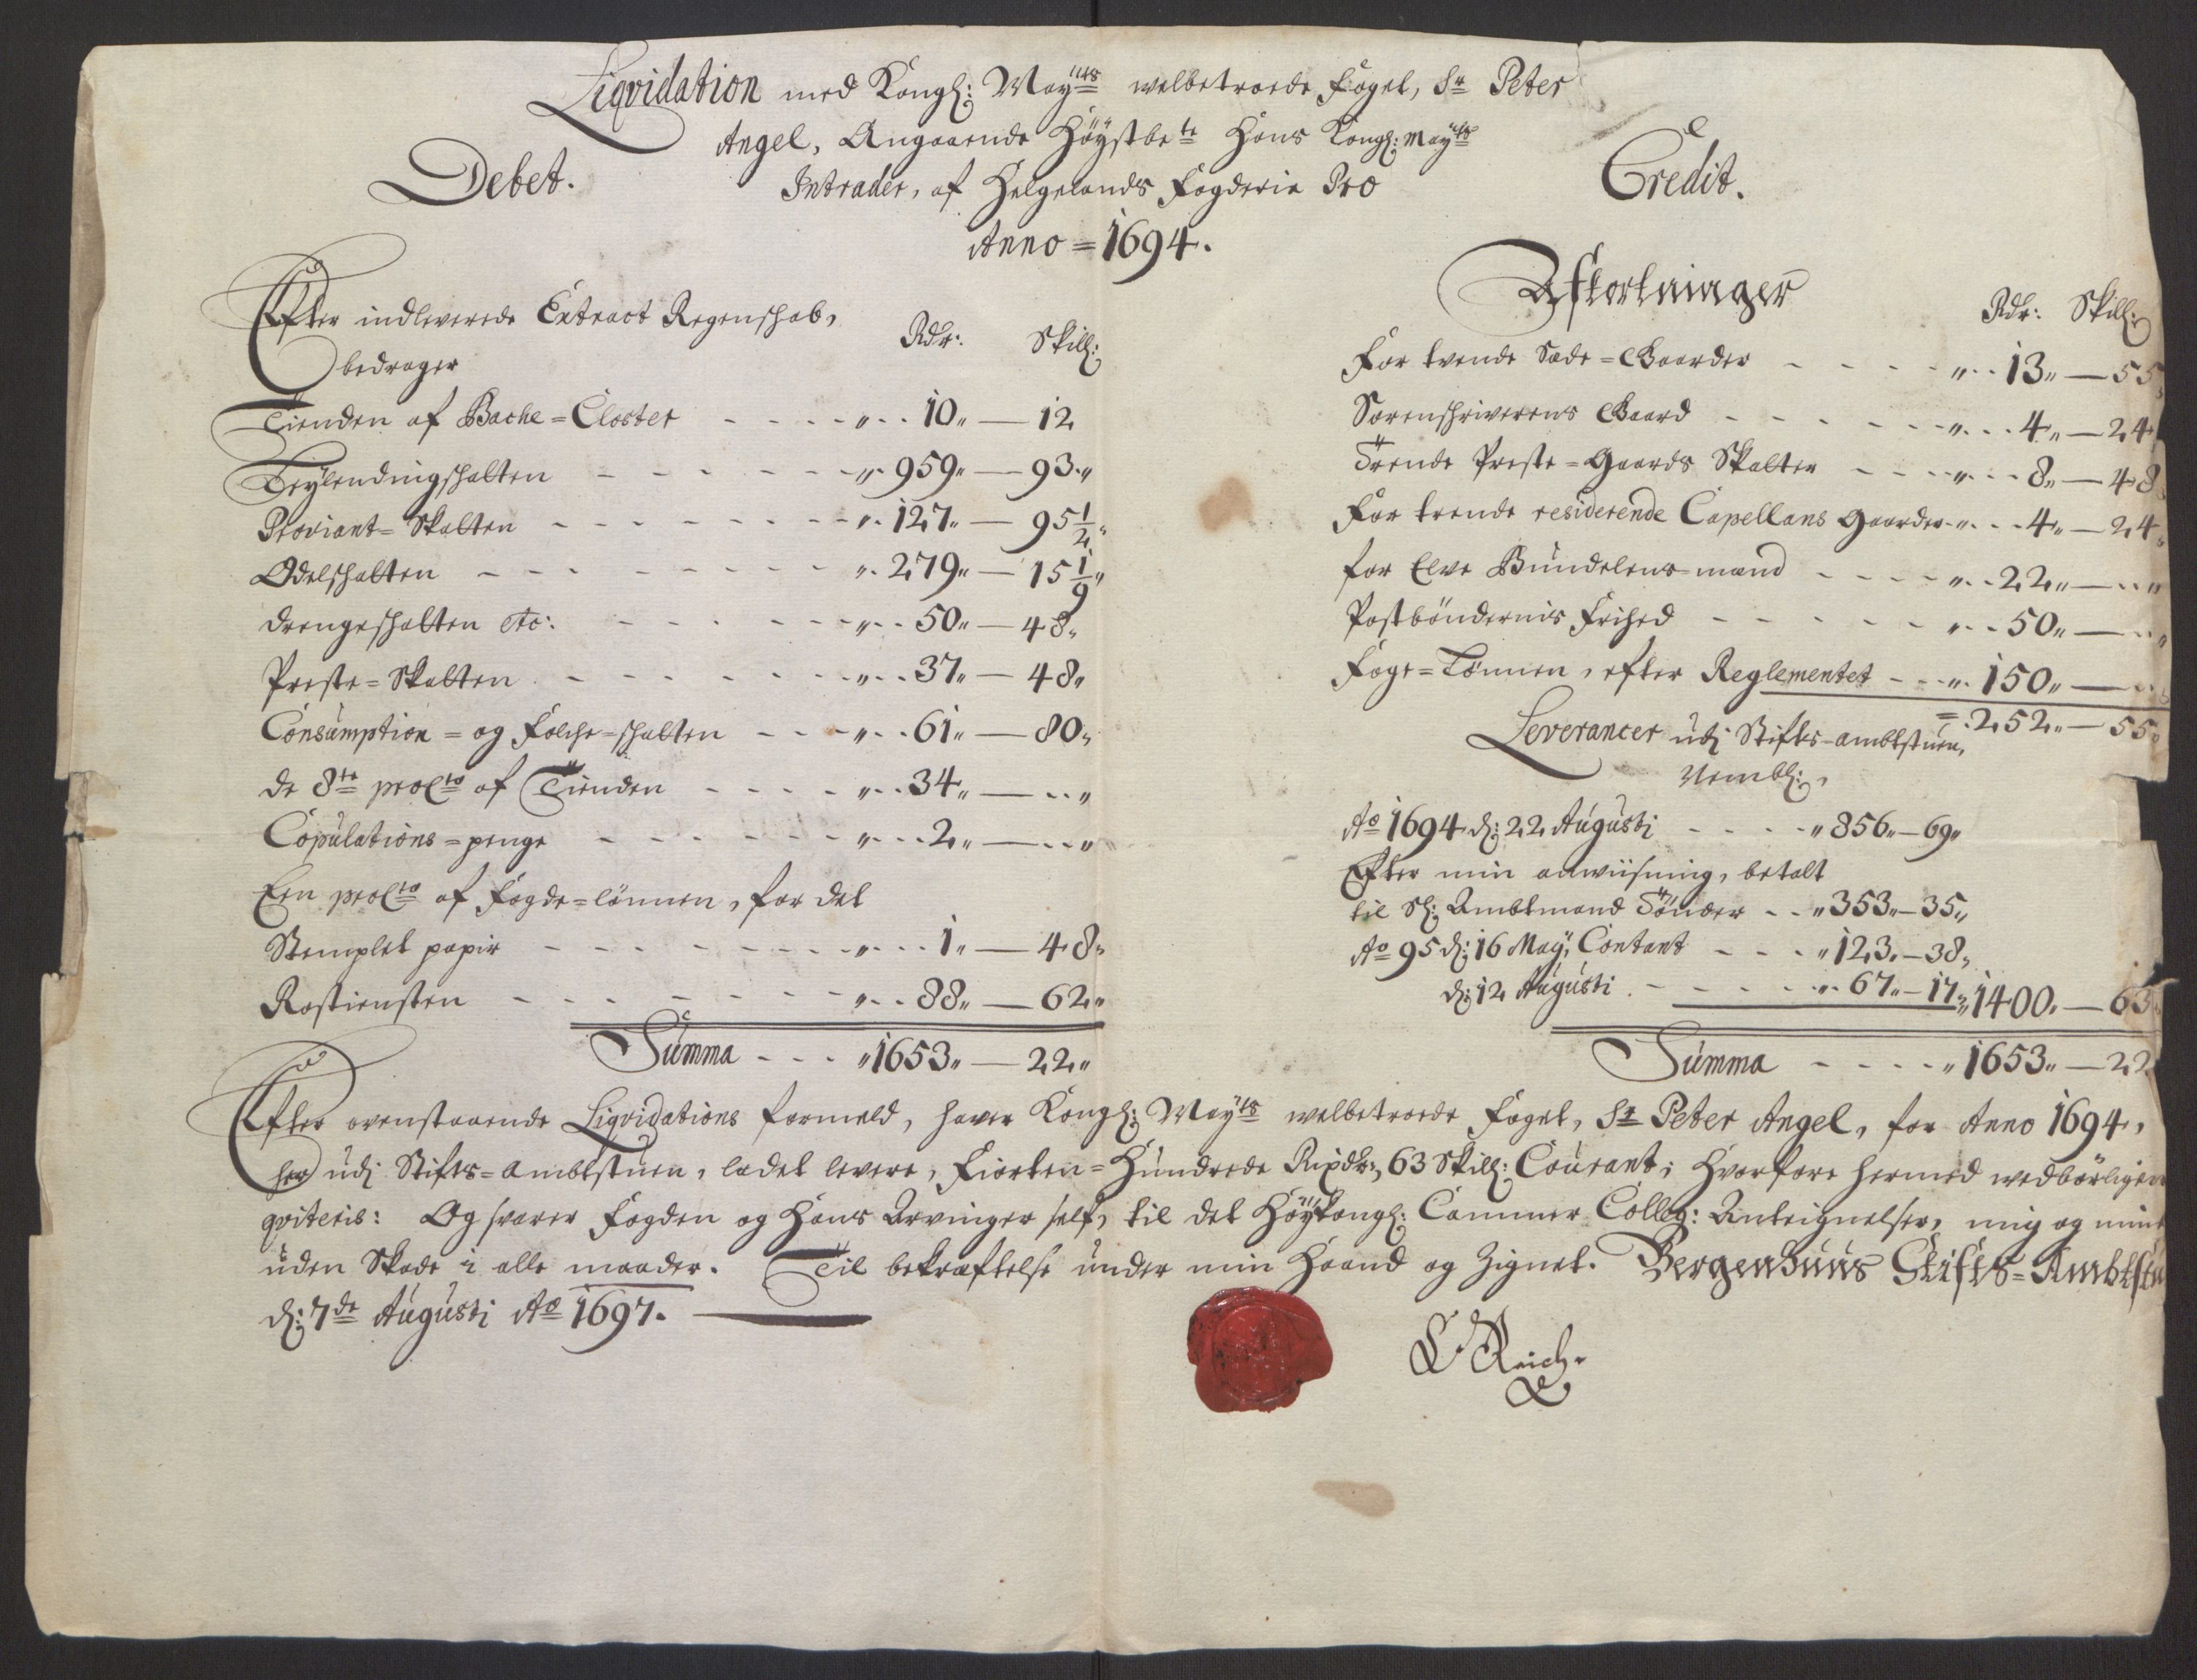 Liqvidation med Kongl: Mayts welbetroede Foget, Sr Peter
Angel, Angaaende Høystbete Hans Kongl: Mayts
Intrader, af Helgelands Fogderie Pro
Anno = 1694.
Debet.
Efter indleverede Extract Regenschab,
bedrager
Rdr: Skill:
Tienden af Bache = Closter - - - - „ - - 10„ — 12
Leylendingschatten - - - - - - „ - 959„ — 93„
Proviant = Skatten - - - - - - - „ - 127„ — 95 1/2„
Odelschatten - - - - - - - - „ - 279„ — 15 1/9„
drengeschatten etc: - - - - - „ - - 50„ — 48„
Preste = Skatten - - - - - - - „ - - 37„ — 48„
Consumption = og Folche = schatten - - - „ - - 61„ — 80„
de 8te proCto af Tienden - - - - „ - - 34„ — - - „
Copulations = penge - - - - - - „ - - - 2„ — - - „
Een proCto af Fogde = lønnen, for det
Stemplet papir - - - - - - - - „ - - - 1„ — 48„
Rostiensten - - - - - - - „ - - 88„ — 62„
Summa - - - „ 1653„ — 22„
Credit.
Afkortninger
Rdr: Skill:
For tvende Sæde = Gaarder - - - - „ - - 13„ — 55
Sorenschriverens Gaard - - - - - - „ - - - 4„ — 24
Trende Preste = Gaards Skatter - - - - „ - - - 8„ — 48
For trende residerende Capellans Gaarder - „ - - - 4„ — 24
for Elve Bundelens mænd - - - - „ - - 22„ — - - „
Postbøndernis Frihed - - - - - - „ - - 50„ — - - „
Foge = Lønnen, efter Reglementet - - - „ - 150„ — - -
= 252„ — 55
Leverancer udj Stifts-ambtstuen,
Nembl:,
Ao 1694 d: 22 Augusti - - - - „ 856„ — 69„
Efter min anwiisning, betalt
til Sl: Ambtmand Tønder - - „ 353„ — 35„
Ao 95 d: 16 May, Contant - - - „ 123„ — 38„
d: 12 Augusti - - - - - „ - 67„ — 17„ 1400„ — 63
Summa - - - - „ 1653„ — 22
Efter ovenstaaende Liqvidations formeld, haver Kongl: Mayts welbetroede Foget, Sr Peter Angel, for Anno 1694,
her udj Stifts = ambtstuen, ladet levere, Fiorten = Hundrede Rixdlr:, 63 Skill: Courant; Hvorfore hermed wedbørligen
qviteris: Og svarer Fogden og Hans Arvinger self, til det Høykongl: Cammer Colleg: Anteignelser, mig og mine
uden Skade i alle maader. Til bekræftelse under min Haand og Zignet. Bergenhuus Stifts = Ambtstu
d: 7de Augusti Ao 1697.
Reich